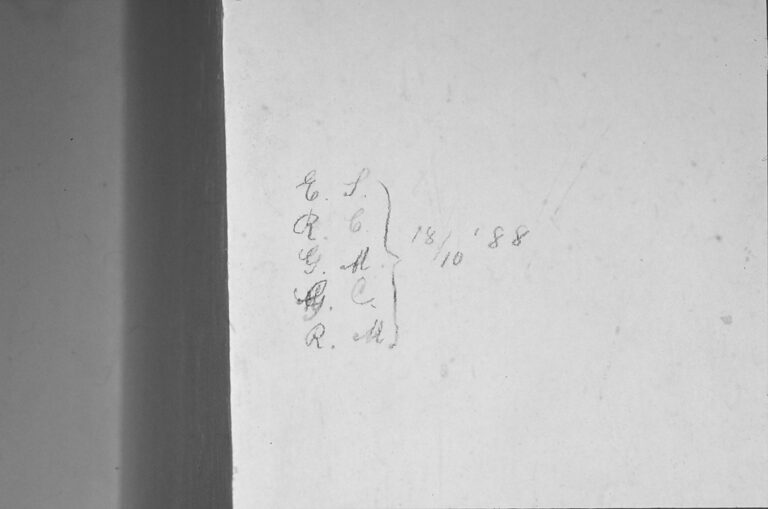 E. S.
R. C.
G. M.
G. C.
R. M.
18/10 '88